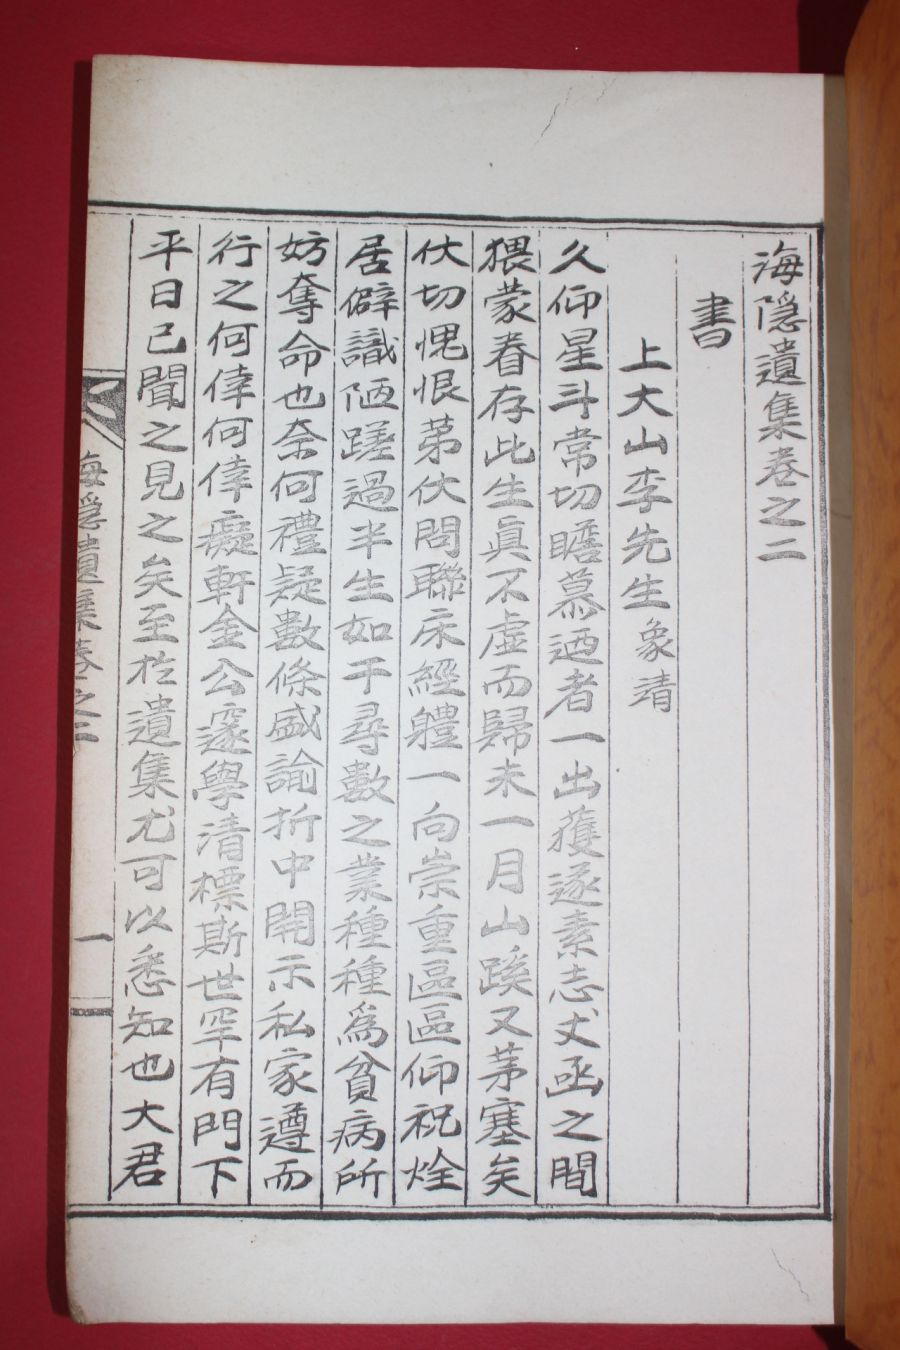 海隱遺集卷之二
書
上大山李先生象靖
久仰星斗常切瞻慕迺者一出獲遂素志丈函之間
猥蒙眷存此生眞不虛而歸未一月山蹊又茅塞矣
伏切愧恨苐伏問聯床經軆一向崇重區區仰祝烇
居僻識陋蹉過半生如干尋數之業種種爲貧病所
妨奪命也奈何禮疑數條盛諭折中開示私家遵而
行之何倖何倖癡軒金公邃學清標斯世罕有門下
平日已聞之見之矣至於遺集尤可以悉知也大君
海隱遺集卷之二
一